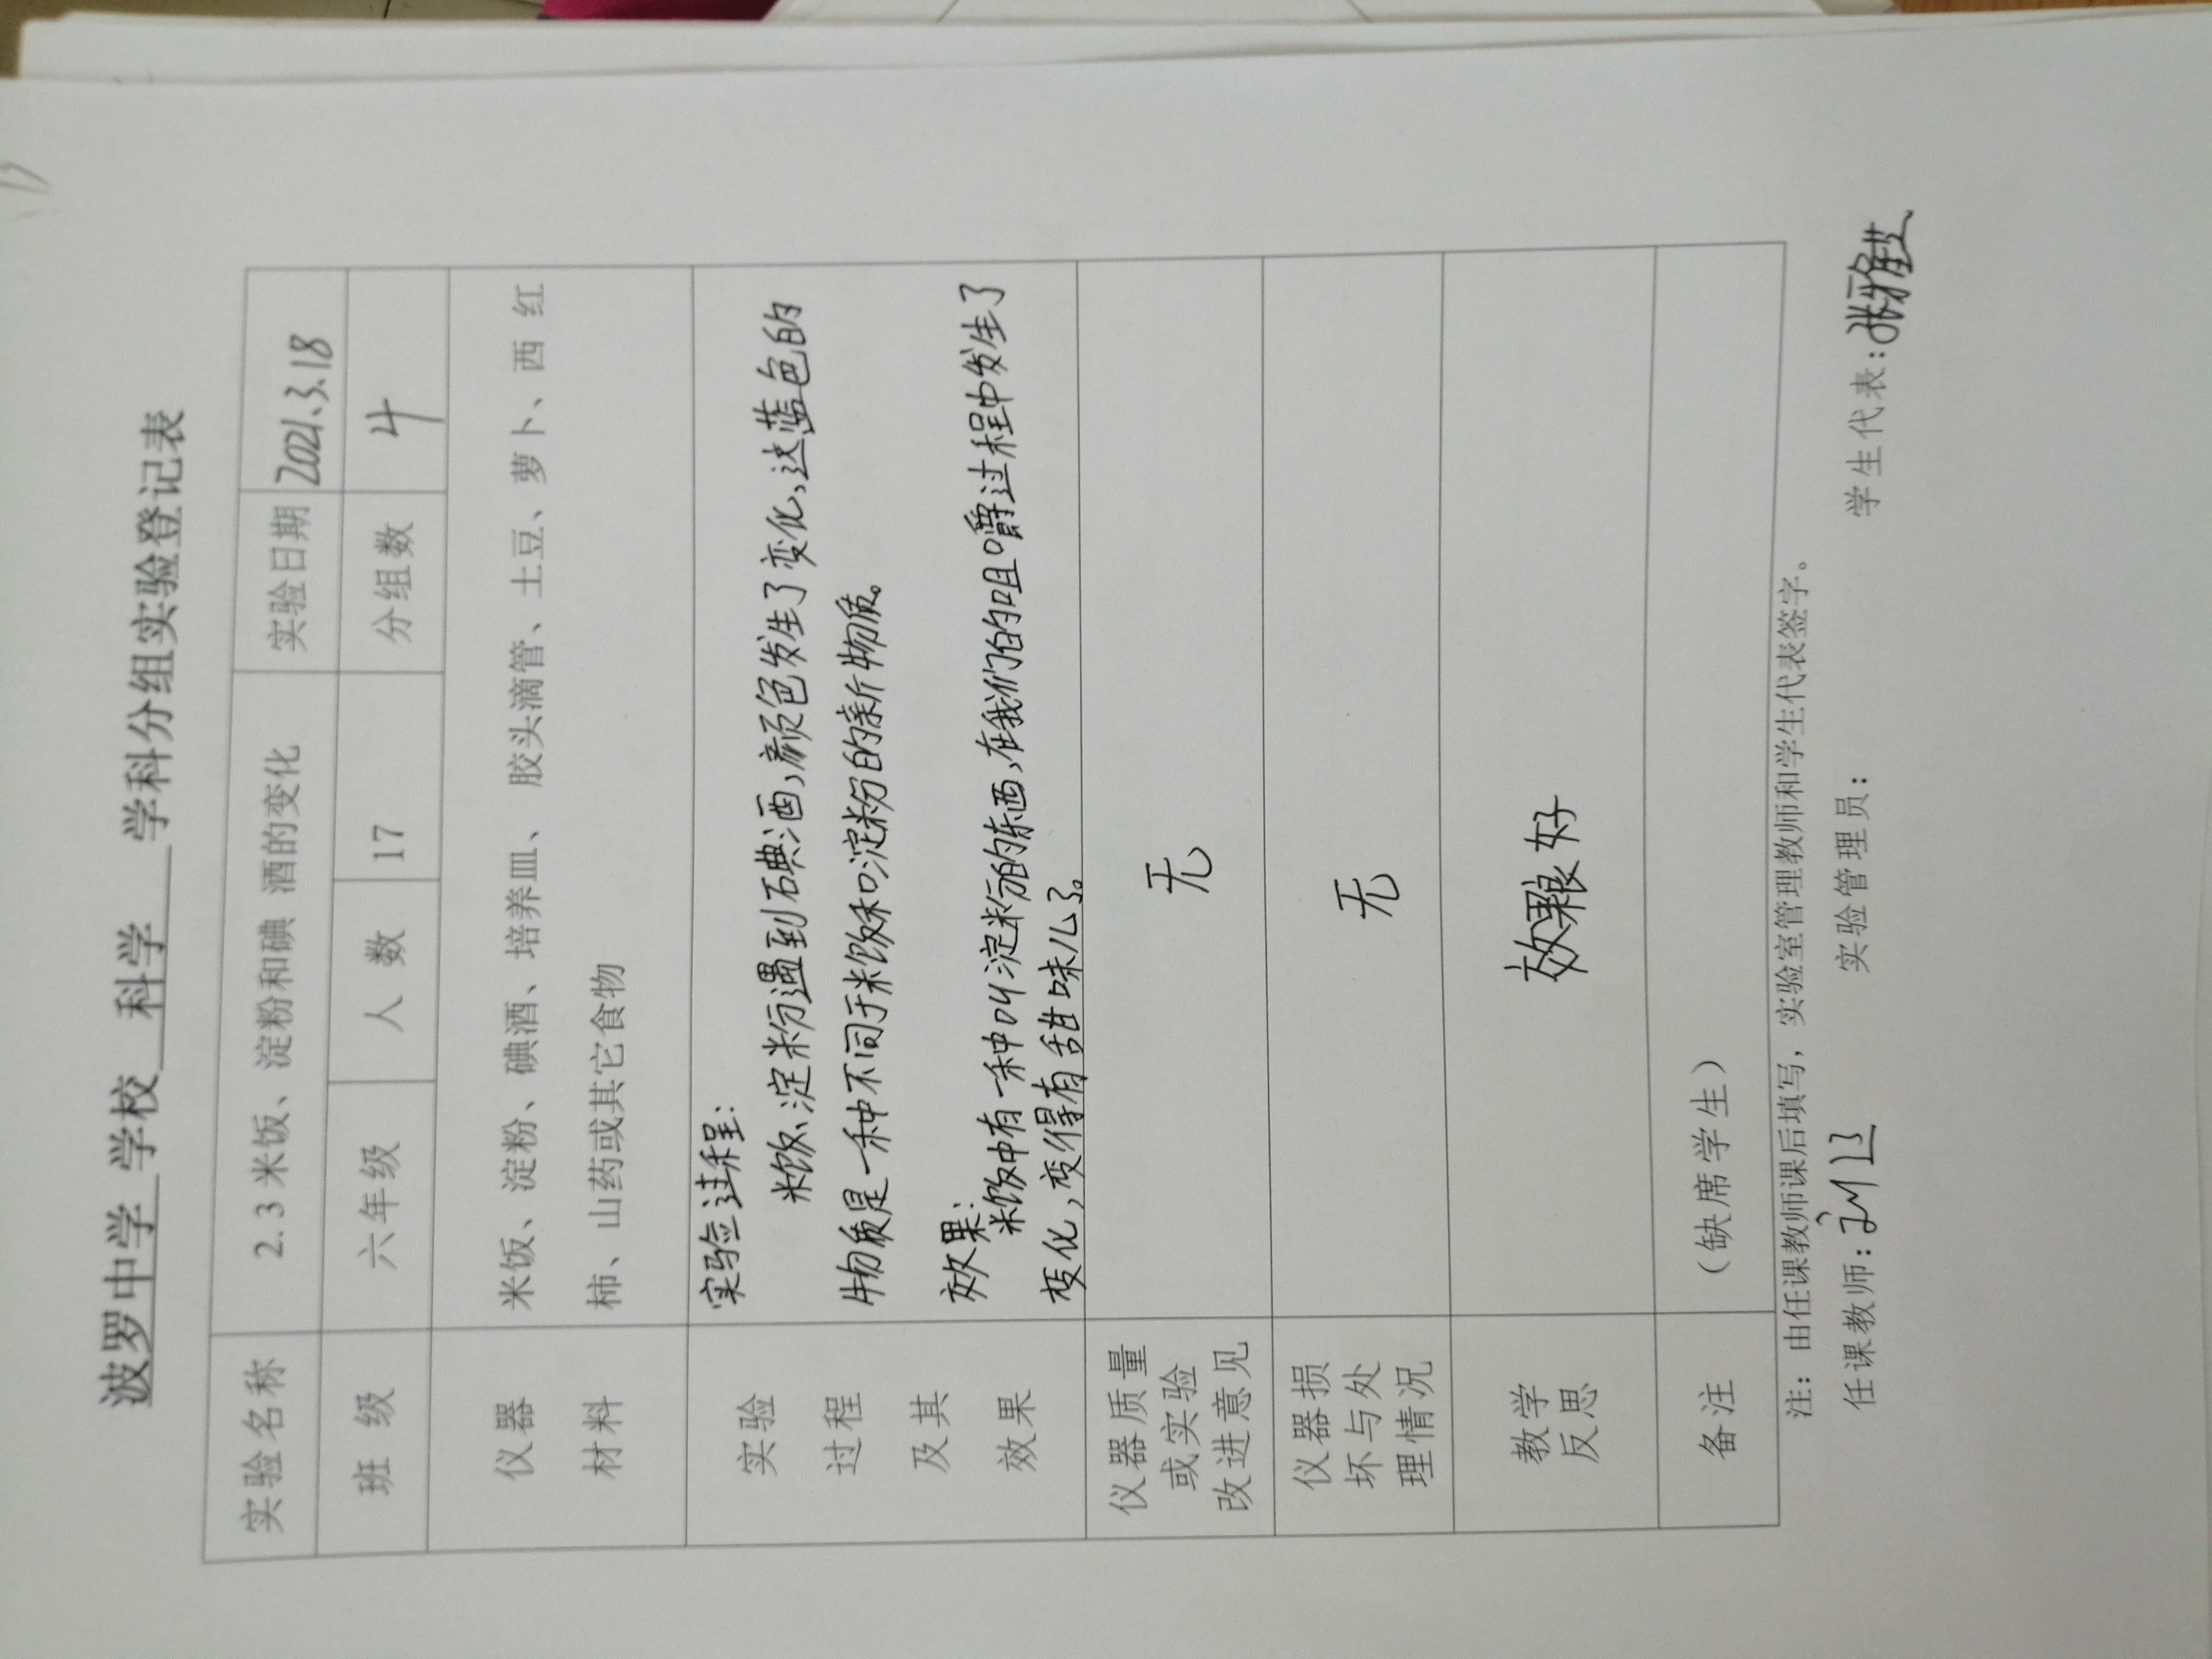 波罗中学 学校 科学 学科分组实验登记表
实验名称 2.3 米饭、淀粉和碘 酒的变化 实验日期 2021.3.18
班 级 六年级 人 数 17 分组数 4
仪器
材料
米饭、淀粉、碘酒、培养皿、 胶头滴管、土豆、萝卜、西 红
柿、山药或其它食物
实验
过程
及其
效果
实验过程:
米饭、淀粉遇到碘酒,颜色发生了变化,这蓝色的
物质是一种不同于米饭和淀粉的新物质。
效果:
米饭中有一种叫淀粉的东西,在我们的咀嚼过程中发生了
变化,变得有甜味儿了。
仪器质量
或实验
改进意见
无
仪器损
坏与处
理情况
无
教学
反思
效果良好
备注 (缺席学生)
注: 由任课教师课后填写, 实验室管理教师和学生代表签字。
任课教师: 实验管理员: 学生代表: